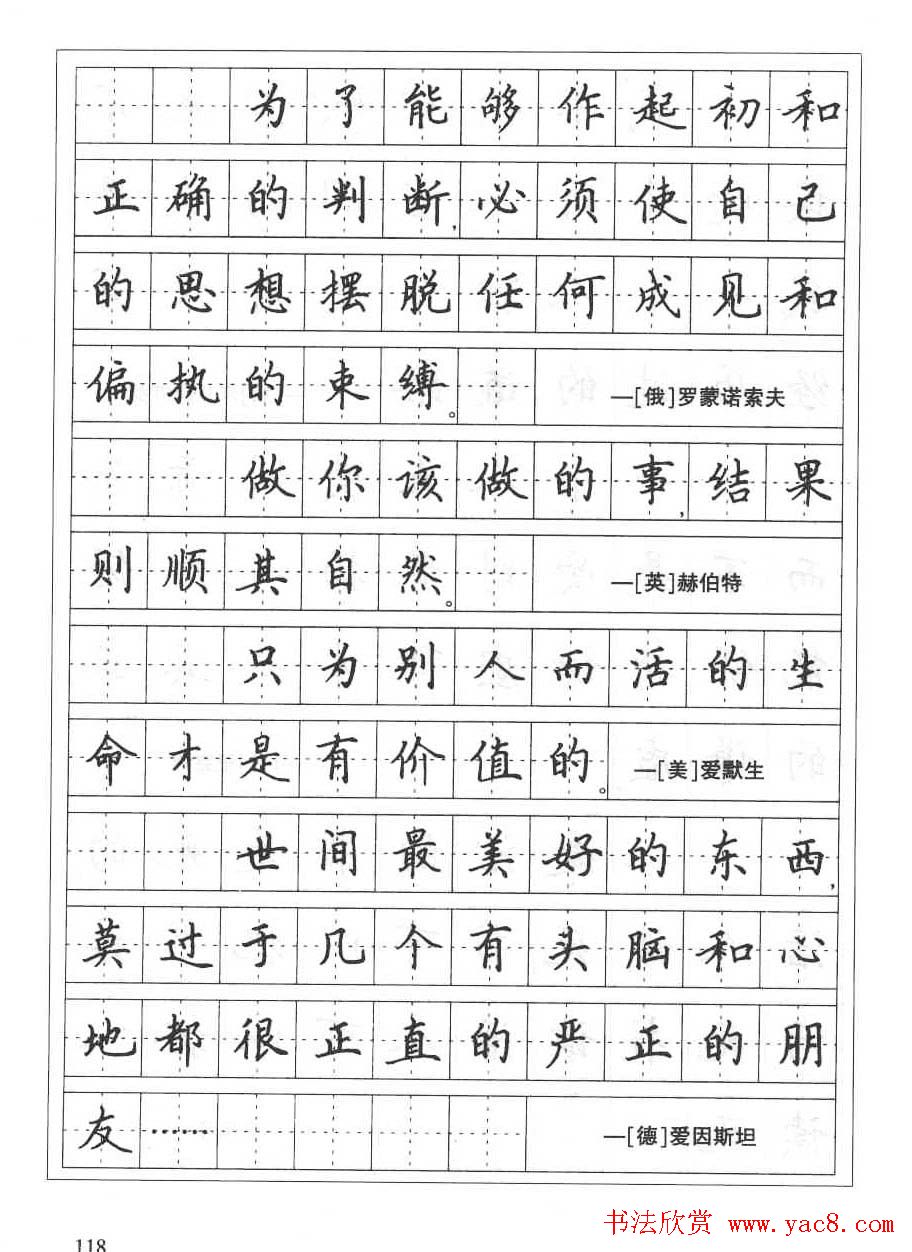 为了能够作起初和
正确的判断,必须使自己
的思想摆脱任何成见和
偏执的束缚。 —[俄]罗蒙诺索夫
做你该做的事,结果
则顺其自然。 —[英]赫伯特
只为别人而活的生
命才是有价值的。 —[美]爱默生
世间最美好的东西,
莫过于几个有头脑和心
地都很正直的严正的朋
友…… —[德]爱因斯坦
118
书法欣赏 www.yac8.com